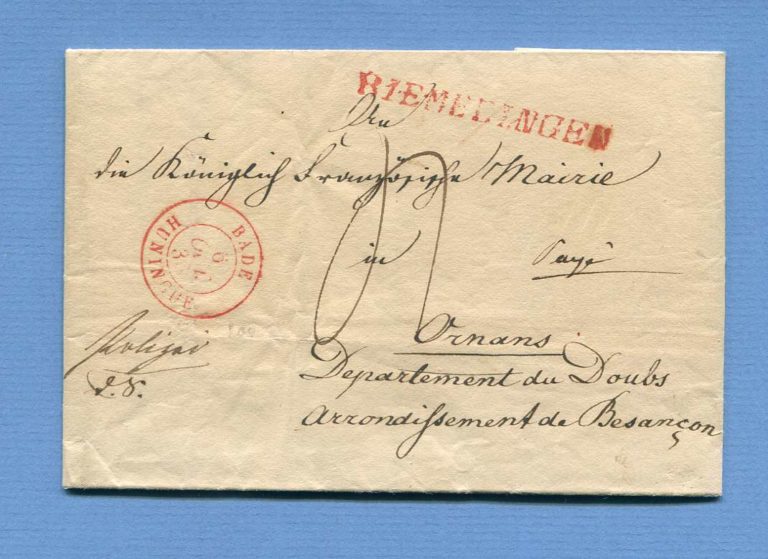 RIEMLINGEN
An
die Königlich Französische Mairie
in
Payé
Ornans
Departement du Doubs
Arrondissement de Besançon
BADE
HUNINGUE
6
3
Polizei
d. S.